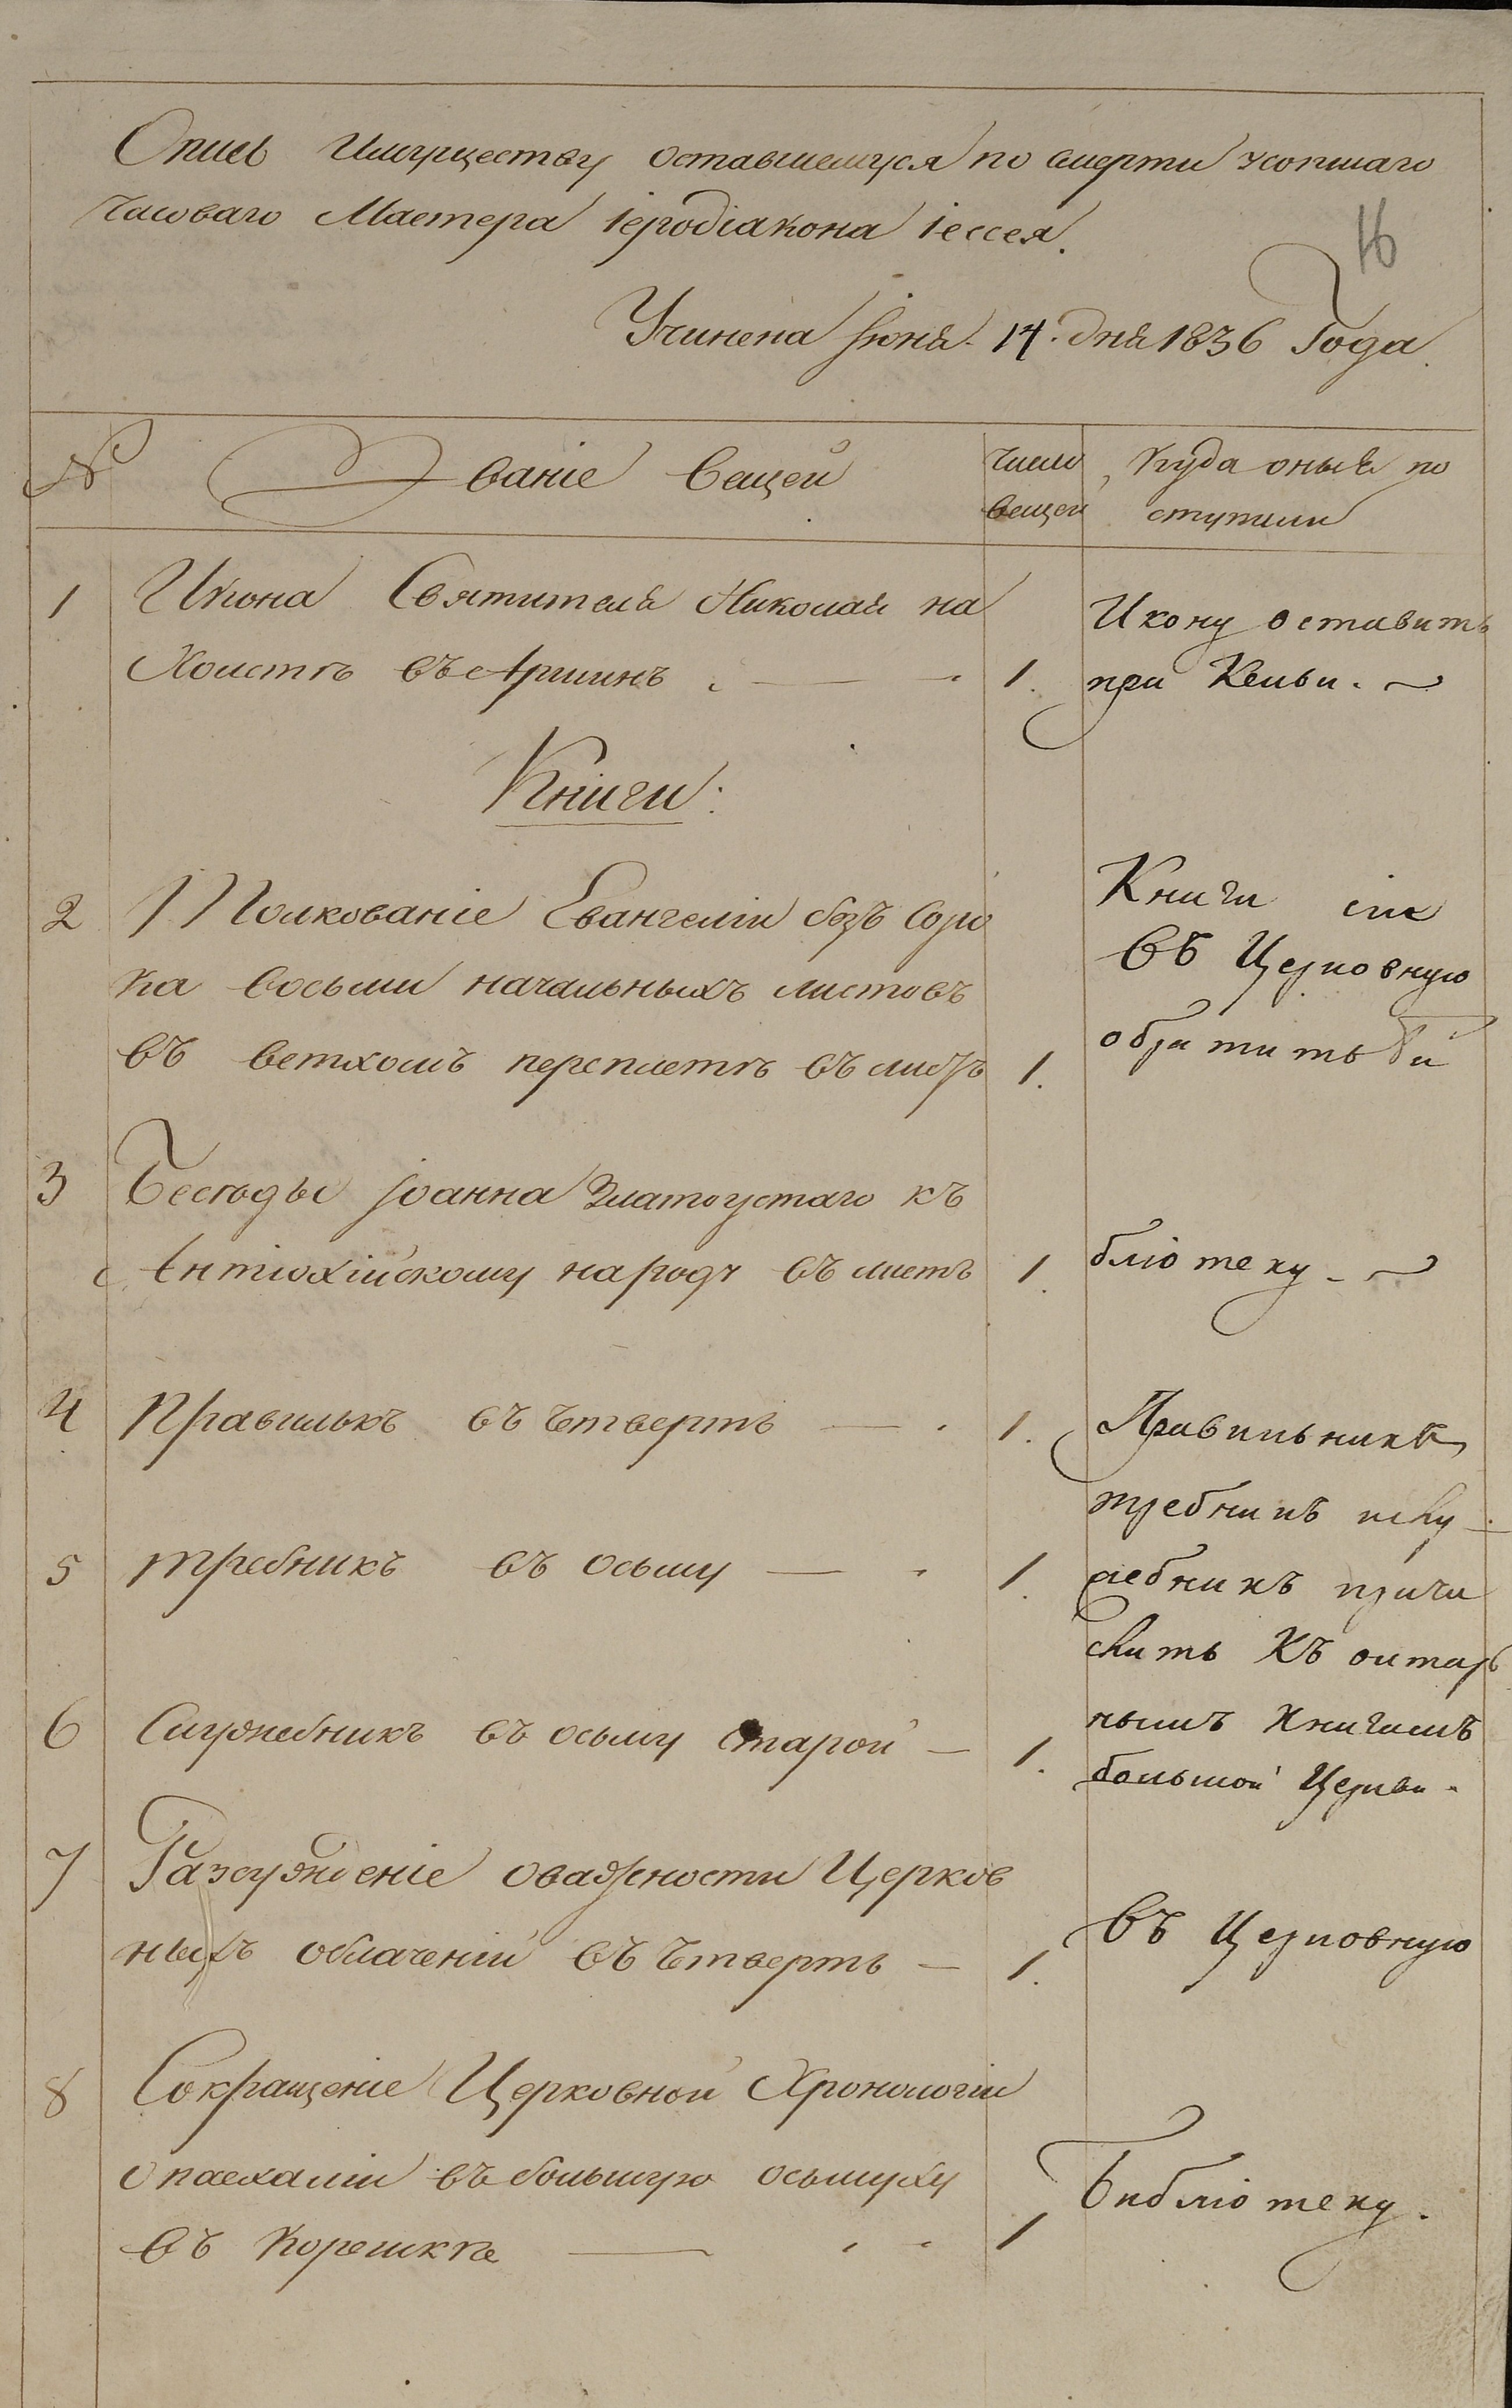 Опись Имуществу оставшемуся по смерти усопшаго
Часоваго Мастера Іеродіакона Іессея.
16
Учинена Іюня. 14. дня 1836 Года.
№ Званіе вещей число вещей Куда оныя по
ступили
1 Икона Святителя Николая на
Холстѣ въ Аршинъ. — 1.
Икону оставить
при Кельи. ~
Книги:
2 Толкованіе Евангелія безъ соро
ка восьми начальныхъ листовъ
въ ветхомъ переплетѣ въ листъ 1.
Книги сіи
въ Церковную
обратить би
3 Бесѣды Іоанна Златоустаго къ
Антіохійскому народу въ листъ 1.
бліотеку. ~
4 Правильнкъ въ четверть — 1.
5 требникъ въ осьму — 1.
6 Служебникъ въ осьму старой — 1.
Правильникъ
требникъ ислу-
жебникъ причи
слить Къ олтар
нымъ книгамъ
большой Церкви.
7 Разсужденіе оважности Церков
ныхъ облаченій въ четверть — 1.
въ Церковную
8 Сокращеніе Церковной Хронологіи
опасхаліи въ большую осьмуху
въ Корешкѣ — 1
Библіотеку.